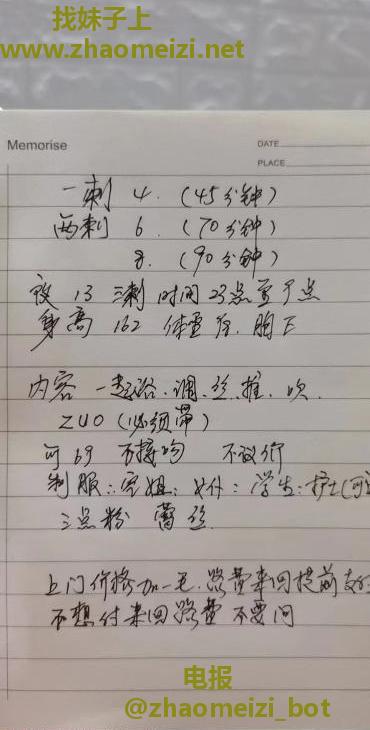 找妹子上
www.zhaomeizi.net
Memorise
DATE
PLACE
一刺 4. (45分钟)
两刺 6. (70分钟)
8. (90分钟)
夜 13 三刺 时间 23点至7点
身高 162 体重 胸F
内容 一起浴.调.丝推.吹.
ZUO (必须带)
可69 不接吻 不议价
制服:空姐: 女仆: 学生:护士(可
三点粉 蕾丝
上门价格加一毛.路费来回提前支付
不想付来回路费 不要问
电报
@zhaomeizi_bot